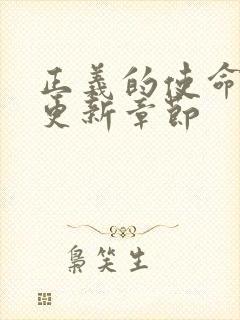 正義的使命
更新章節
梟笑生